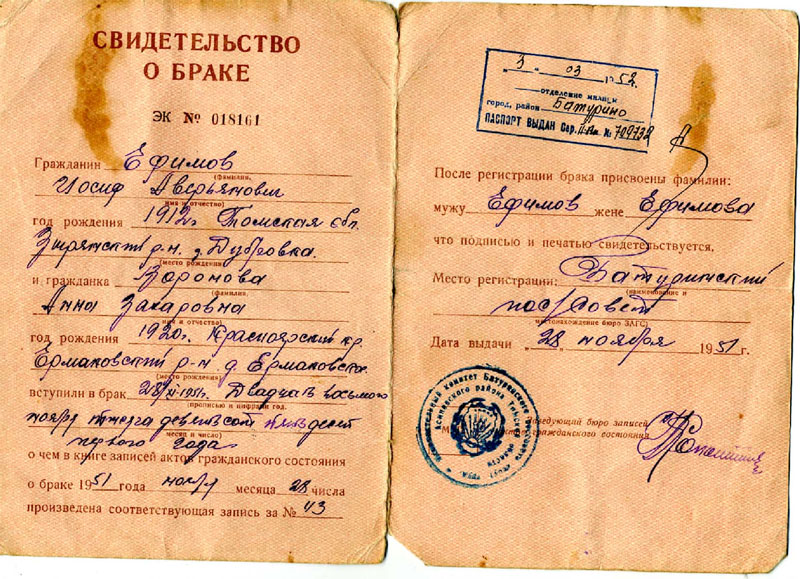 СВИДЕТЕЛЬСТВО
О БРАКЕ
ЭК № 018161
Гражданин Ефимов
(фамилия,
Иосиф Аверьянович
имя и отчество)
год рождения 1912г Томская обл.
Зырянский р-н. д. Дубровка.
(место рождения)
и гражданка Воронова
(фамилия,
Анна Захаровна
имя и отчество)
год рождения 1920г. Красноярский кр.
Ермаковский р-н д. Ермаковск
(место рождения)
вступили в брак 28/XI-1951г. Двадцать восьмого
(прописью и цифрами год,
ноября тысяча девятьсот пятьдесят
месяц и число)
первого года
о чем в книге записей актов гражданского состояния
о браке 1951 года ноября месяца 28 числа
произведена соответствующая запись за № 43
3 - 03 1952
отделение милиции
город, район Батурино
ПАСПОРТ ВЫДАН Сер. № 709732
После регистрации брака присвоены фамилии:
мужу Ефимов жене Ефимова
что подписью и печатью свидетельствуется.
Место регистрации: Батуринский
(наименование и
пос/Совет
местонахождение бюро ЗАГС)
Дата выдачи 28 ноября 1951 г.
Заведующий бюро записей
актов гражданского состояния
Исполнительный комитет Батуринского
Асиновского района Томской области